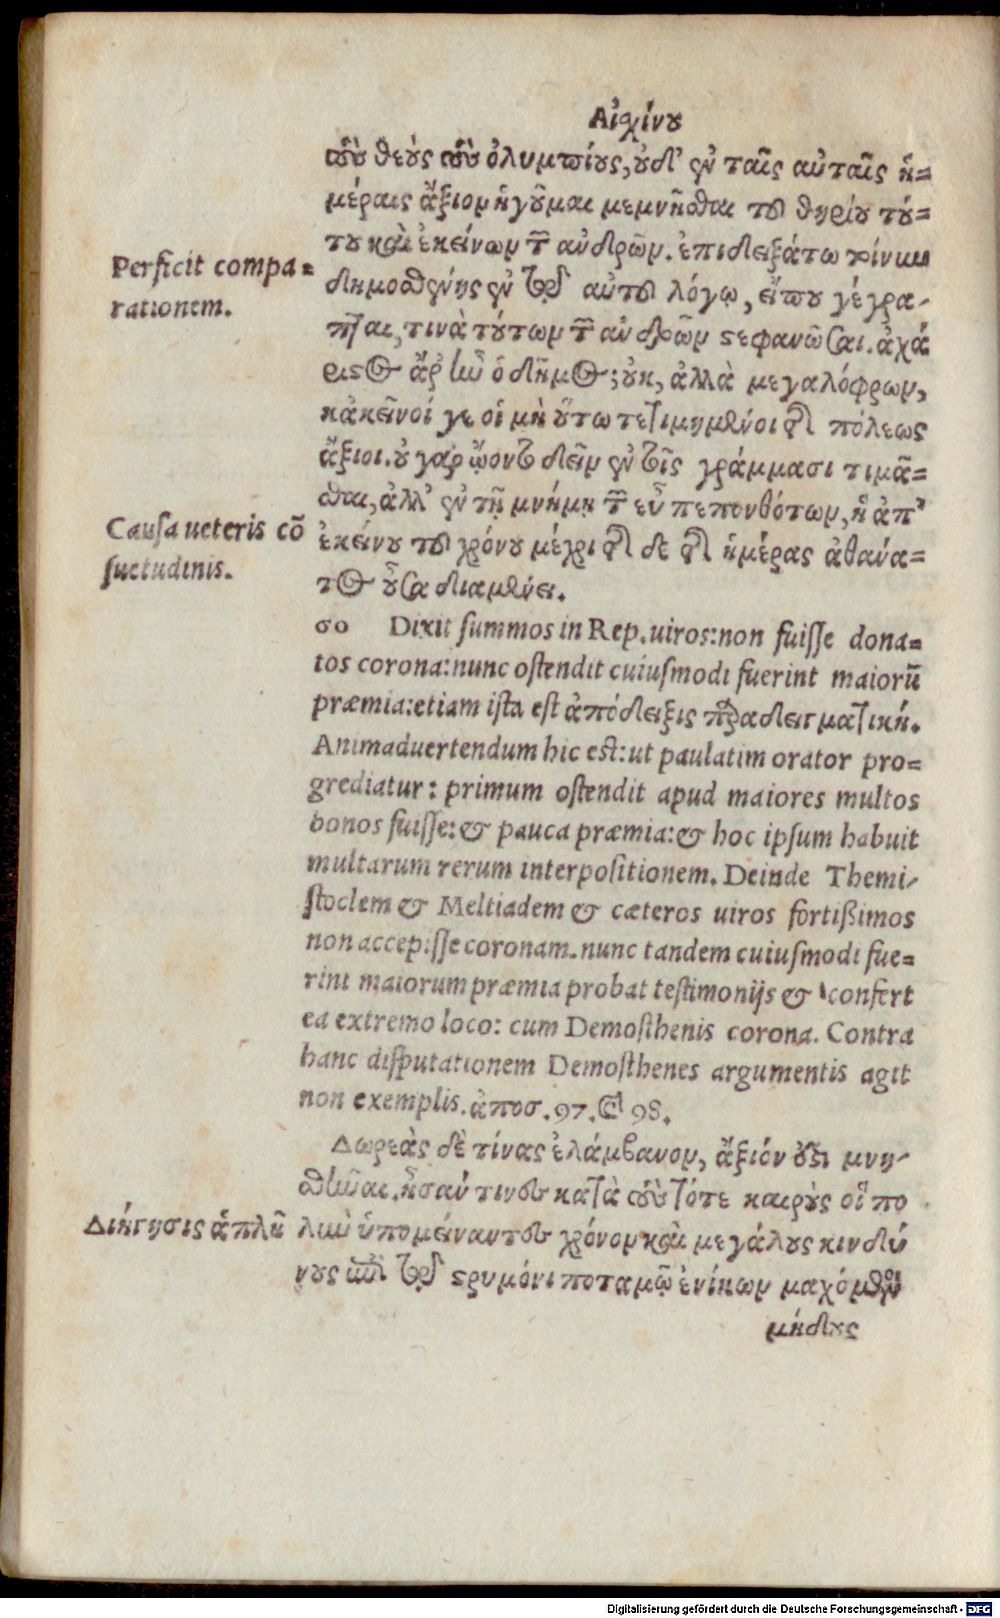 Αἰσχίνου
τοὺς θεοὺς τοὺς ὀλυμπίους, οὐδ' ἐν ταῖς αὐταῖς ἡ=
μέραις ἄξιον ἡγοῦμαι μεμνῆσθαι τοῦ θηρίου τού=
του καὶ ἐκείνων τῶν ἀνδρῶν. ἐπιδειξάτω τοίνυν
Perficit compa=
rationem.
δημοσθένης ἐν τῷ αὐτοῦ λόγῳ, εἴπου γέγρα-
πται, τινὰ τούτων τῶν ἀνδρῶν στεφανῶσαι. ἀχά
ριστος ἄρ' ἦν ὁ δῆμος; οὐκ, ἀλλὰ μεγαλόφρων,
κἀκεῖνοί γε οἱ μὴ οὕτω τετιμημένοι τῆς πόλεως
ἄξιοι. οὐ γὰρ ᾤοντο δεῖν ἐν τοῖς γράμμασι τιμᾶ=
σθαι, ἀλλ' ἐν τῇ μνήμῃ τῶν εὖ πεπονθότων, ἣ ἀπ'
Causa ueteris cõ
suetudinis.
ἐκείνου τοῦ χρόνου μέχρι τῆς δε τῆς ἡμέρας ἀθάνα=
τος οὖσα διαμένει.
σο Dixit summos in Rep. uiros: non fuisse dona=
tos corona: nunc ostendit cuiusmodi fuerint maiorũ
præmia: etiam ista est ἀπόδειξις παραδειγματική.
Animaduertendum hic est: ut paulatim orator pro=
grediatur: primum ostendit apud maiores multos
bonos fuisse: & pauca præmia: & hoc ipsum habuit
multarum rerum interpositionem. Deinde Themi-
stoclem & Meltiadem & cæteros uiros fortißimos
non accepisse coronam. nunc tandem cuiusmodi fue=
rint maiorum præmia probat testimonijs & confert
ea extremo loco: cum Demosthenis corona. Contra
hanc disputationem Demosthenes argumentis agit
non exemplis. ἀποσ. 97. & 98.
Δωρεὰς δὲ τίνας ἐλάμβανον, ἄξιόν ἐστι μνη-
σθῆναι. ἦσάν τινες κατὰ τοὺς τότε καιροὺς οἳ πο
Διήγησις ἁπλῆ
λὺν ὑπομείναντες χρόνον καὶ μεγάλους κινδύ
νους ἐπὶ τῷ στρυμόνι ποταμῷ ἐνίκων μαχόμενοι
μήδους
Digitalisierung gefördert durch die Deutsche Forschungsgemeinschaft - DFG